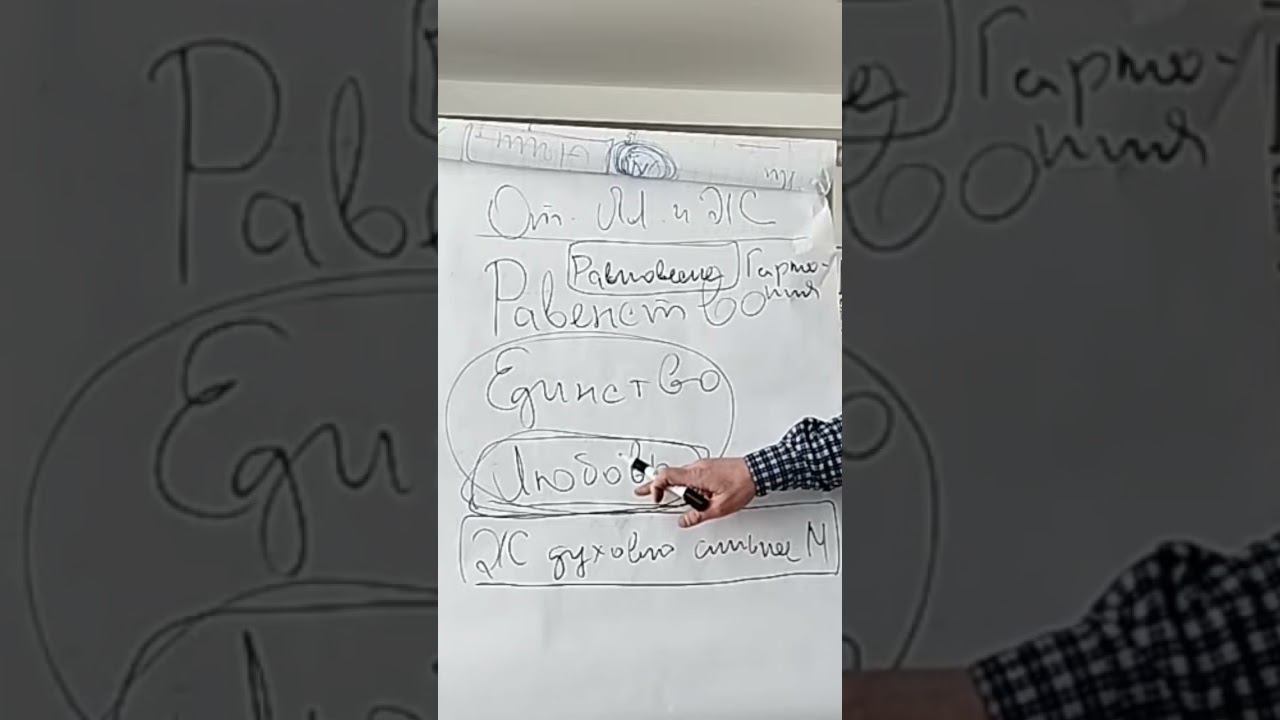 От. М и Ж
Равновесие Гармо-
ния
Равенство
Единство
Любовь
Ж духовно сильнее М